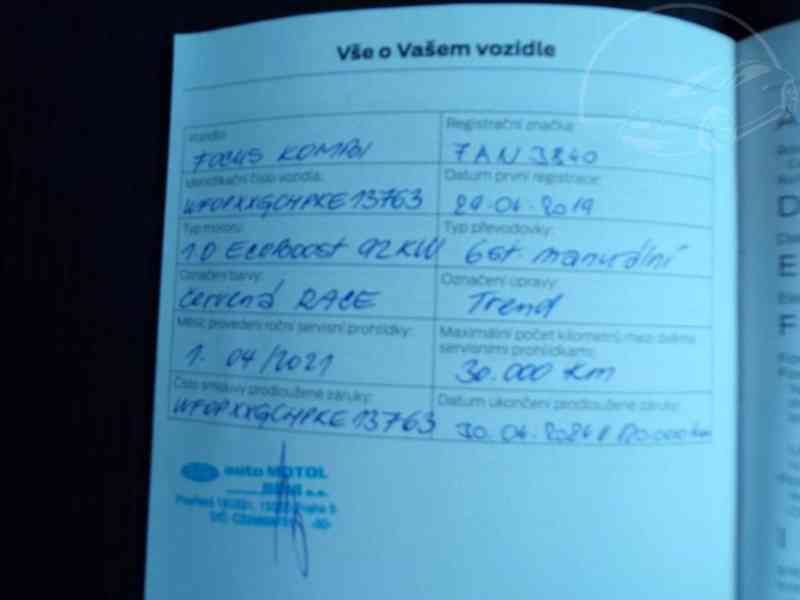 Vše o Vašem vozidle
Vozidlo: Registrační značka:
FOCUS KOMBI 7AN 3840
Identifikační číslo vozidla: Datum první registrace:
WF0PXXGCHPKE13763 29.04.2019
Typ motoru: Typ převodovky:
1.0 EcoBoost 92KW 6st. manuální
Označení barvy: Označení úpravy:
červená RACE Trend
Měsíc provedení roční servisní prohlídky: Maximální počet kilometrů mezi dvěma
servisními prohlídkami:
1. 04/2021 30.000 km
Číslo smlouvy prodloužené záruky: Datum ukončení prodloužené záruky:
WF0PXXGCHPKE13763 30.04.2024 120.000km
auto MOTOL
BENI a.s.